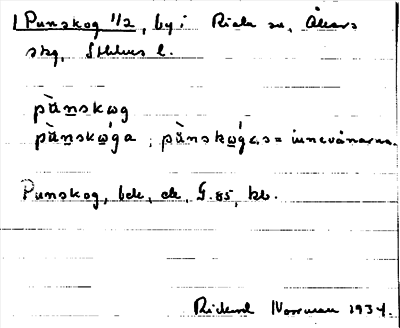 Punskog 1/2, by i Rieda sn, Åkers
skg, Sthlms l.
pùnskωg
pùnskὼga; pùnskὼgεs = innevånarna.
Punskog, bde, ck, G. 85, kb.
Rickard Norrman 1934.